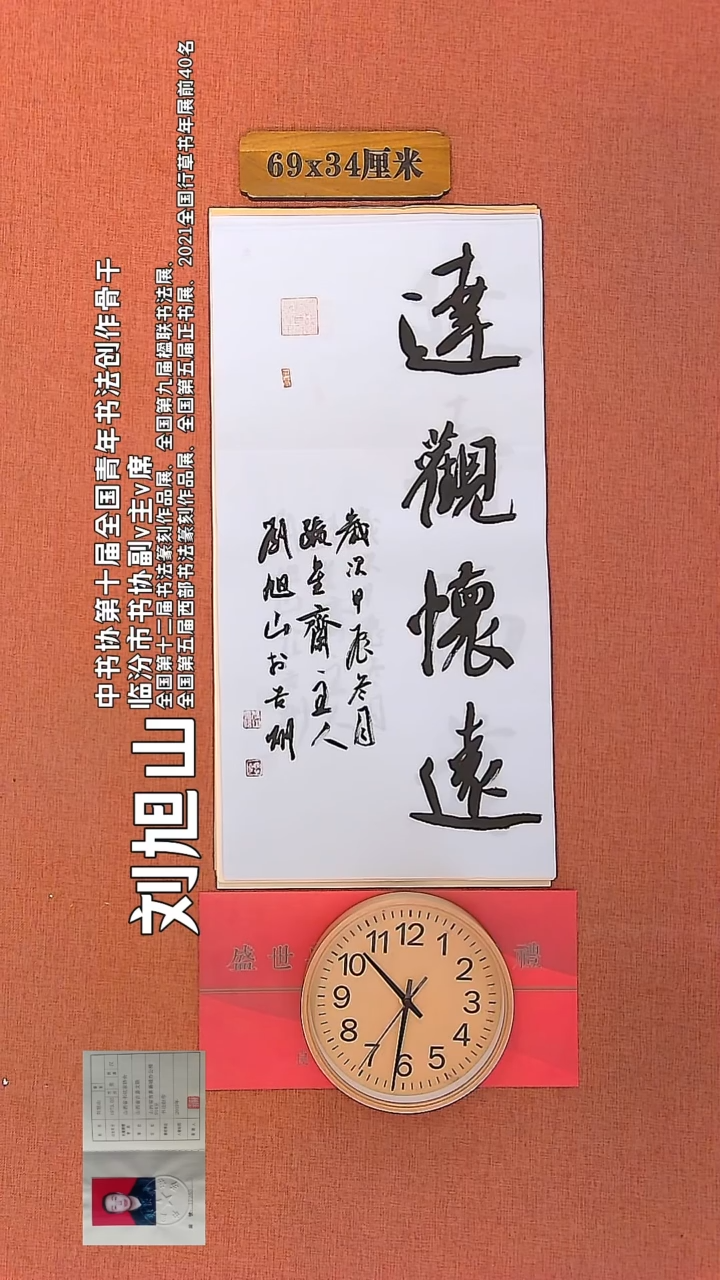 69x34厘米
達觀懷遠
歲次甲辰冬月
齋主人
劉旭山於古
中书协第十届全国青年书法创作骨干
临汾市书协副v主v席
全国第十二届书法篆刻作品展、全国第九届楹联书法展、
全国第五届西部书法篆刻作品展、全国第五届正书展、2021全国行草书年展前40名
刘旭山
盛世
禮
12
1
2
3
4
5
6
7
8
9
10
11